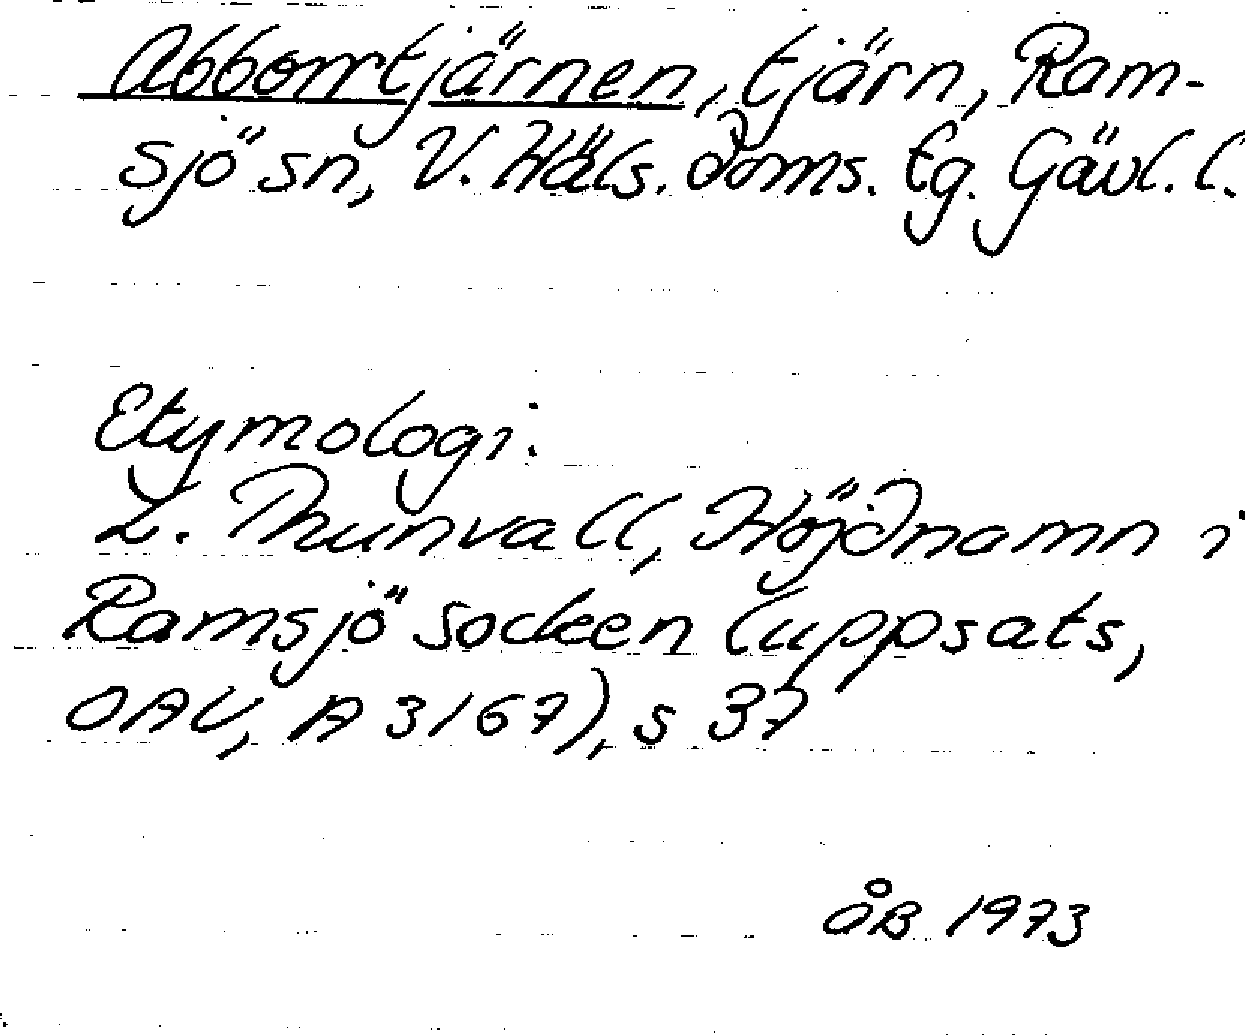 Abborrtjärnen, tjärn, Ram-
sjö sn, V. Häls. Doms. tg. Gävl. l.
Etymologi:
L. Thunvall, Höjdnamn i
Ramsjö socken (uppsats,
OAU, A 3167), s 37
ÅB 1973